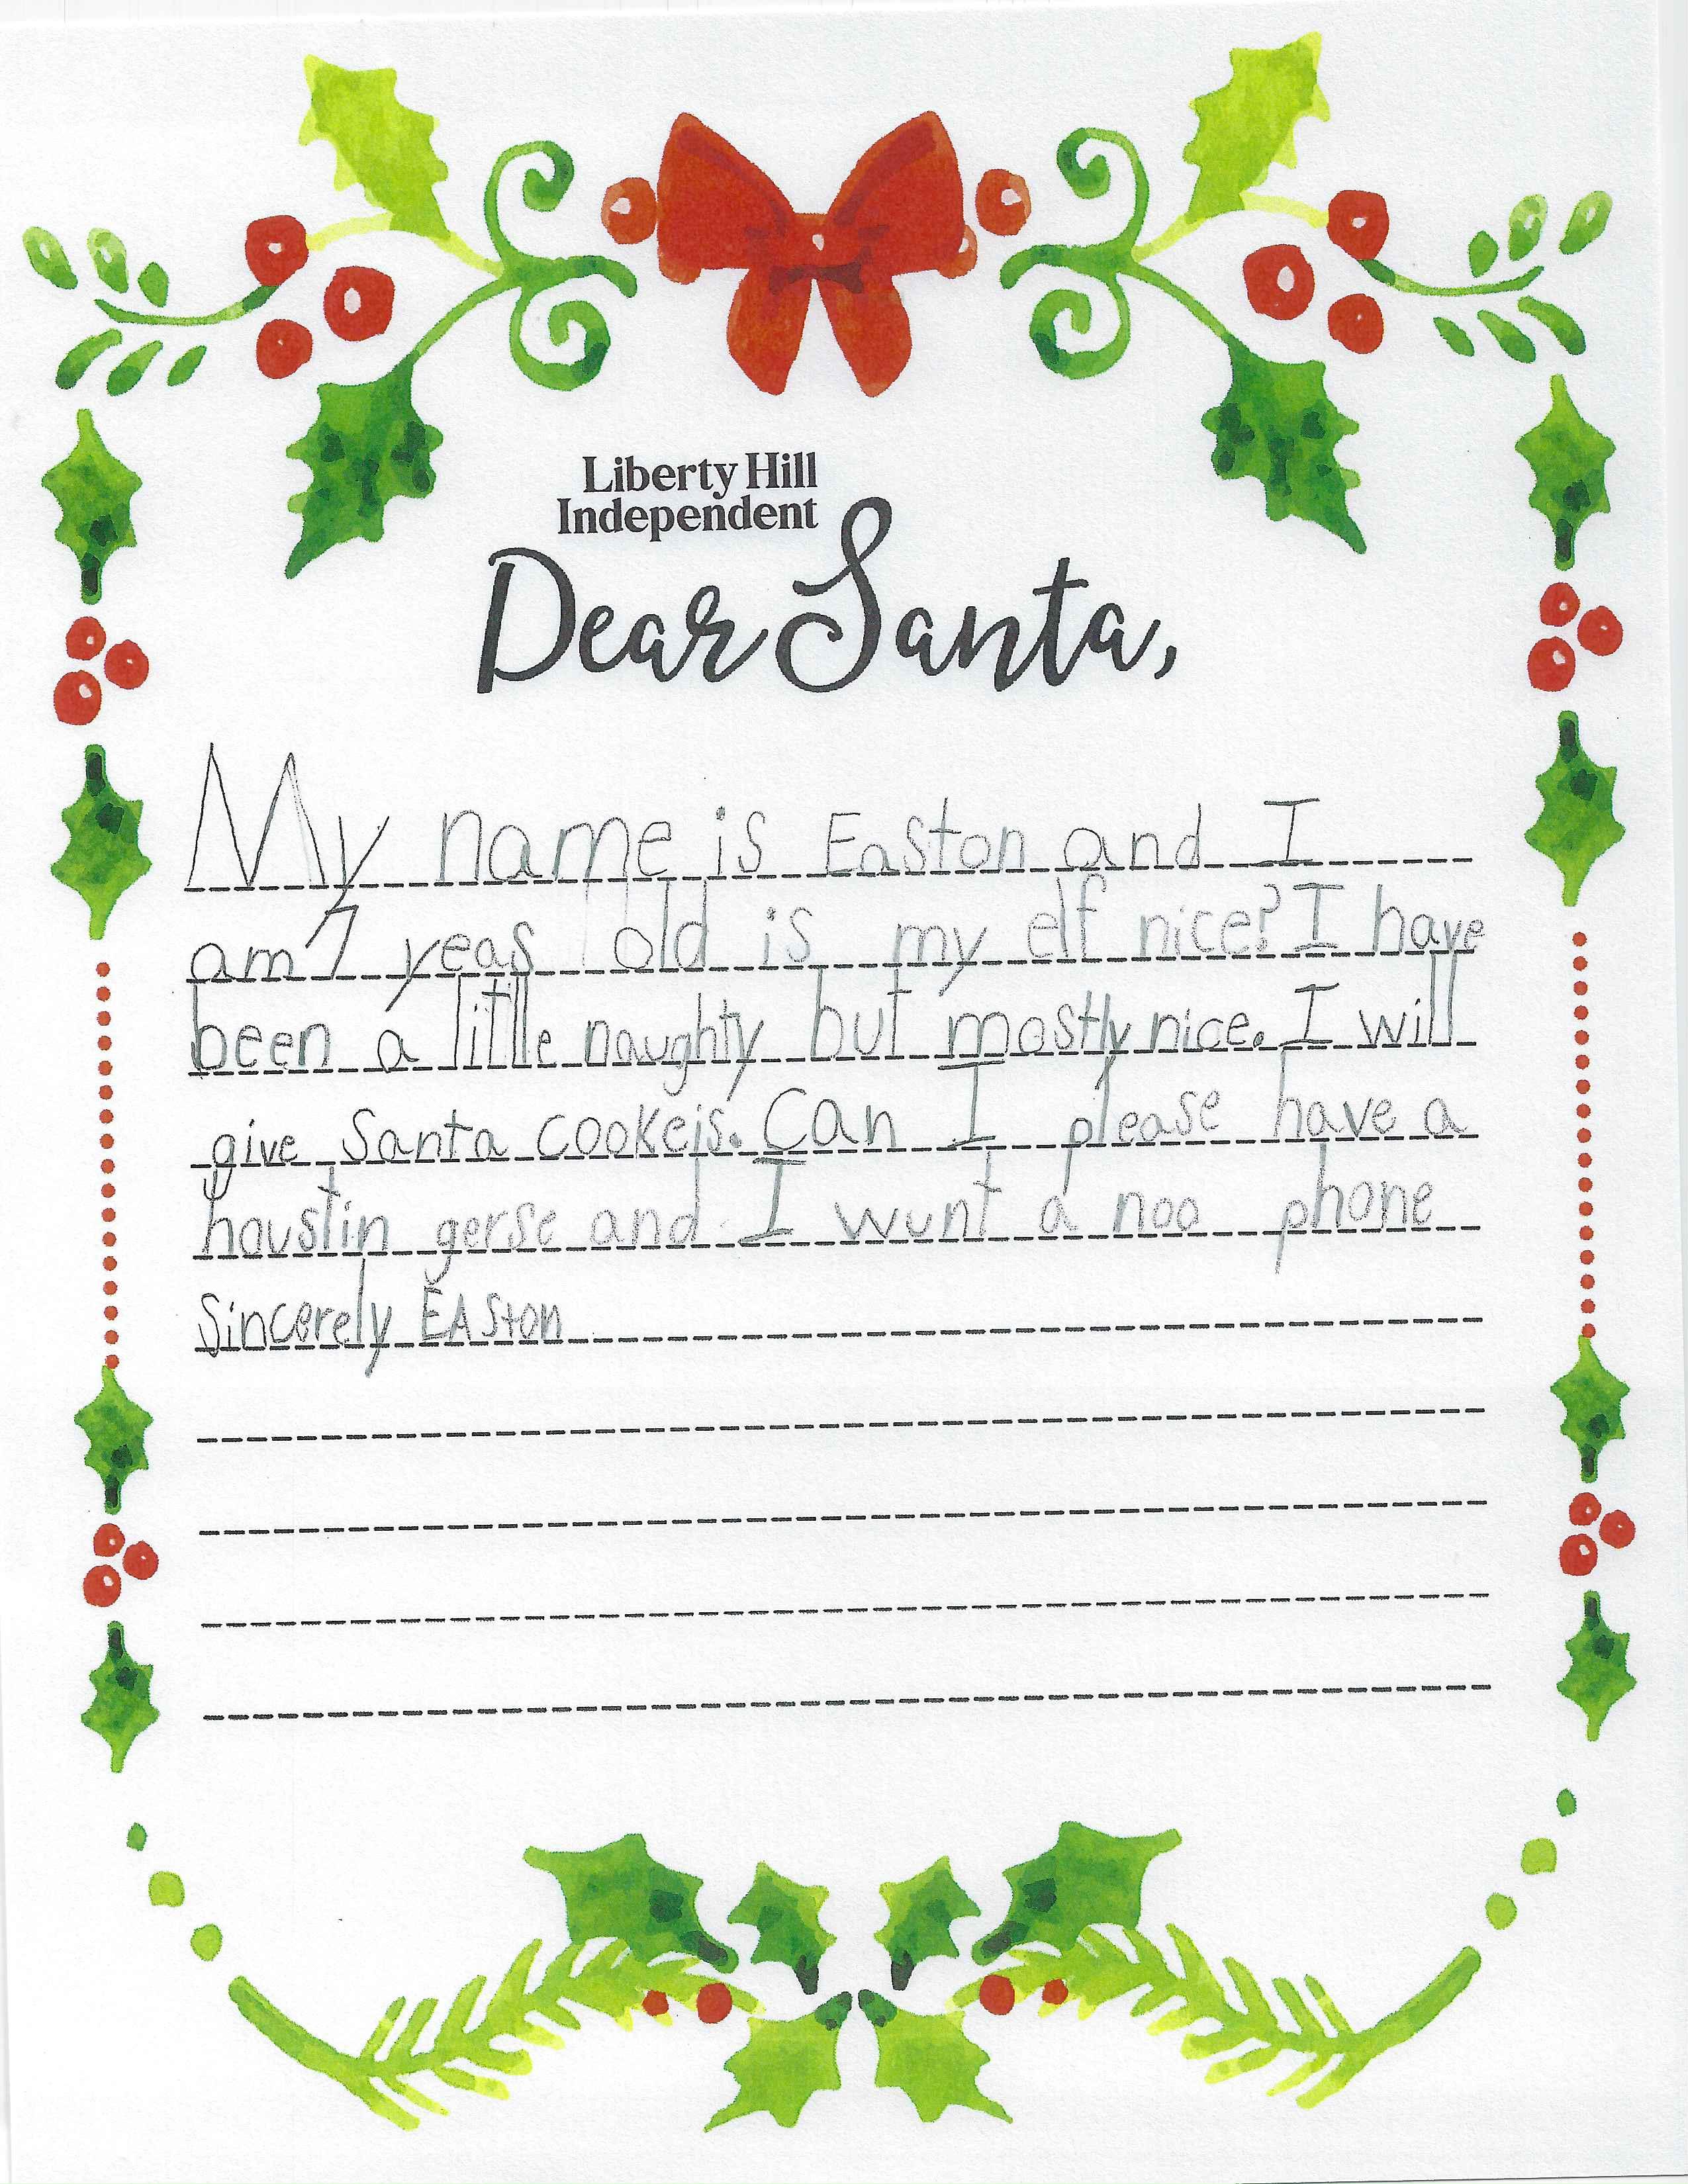 Liberty Hill
Independent
Dear Santa,
My name is Easton and I
am 7 yeas old is my elf nice? I have
been a little naughty but mostly nice. I will
give Santa cookeis. Can I please have a
houstin gerse and I wunt a noo phone
Sincerely EAston